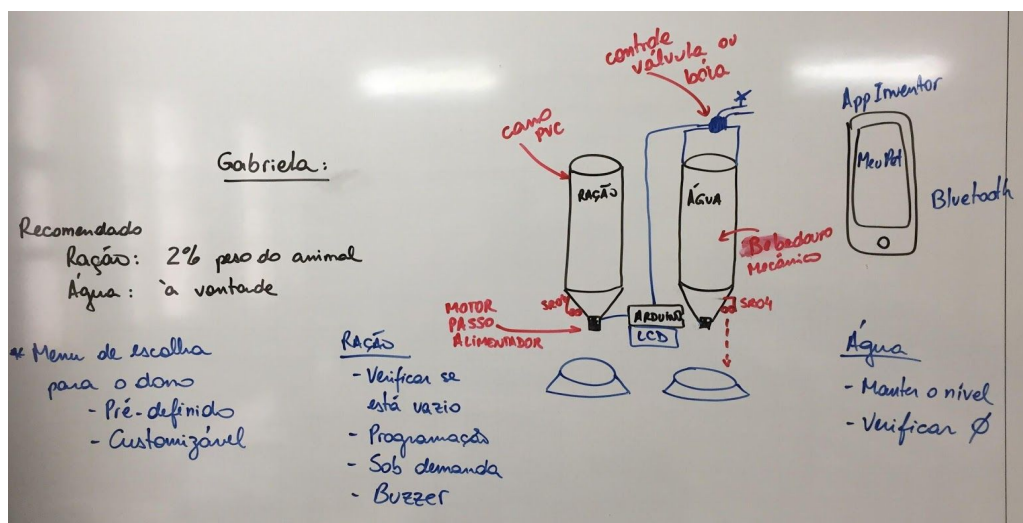 Gabriela:
Recomendado
Ração: 2% peso do animal
Água: à vontade
* Menu de escolha
para o dono
- Pré-definido
- Customizável
RAÇÃO
- Verificar se
está vazio
- Programação
- Sob demanda
- Buzzer
controle
válvula ou
bóia
cano
PVC
RAÇÃO
ÁGUA
Bebedouro
Mecânico
SR04
SR04
MOTOR
PASSO
ALIMENTADOR
ARDUINO
LCD
App Inventor
Meu Pet
Bluetooth
Água
- Manter o nível
- Verificar Ø